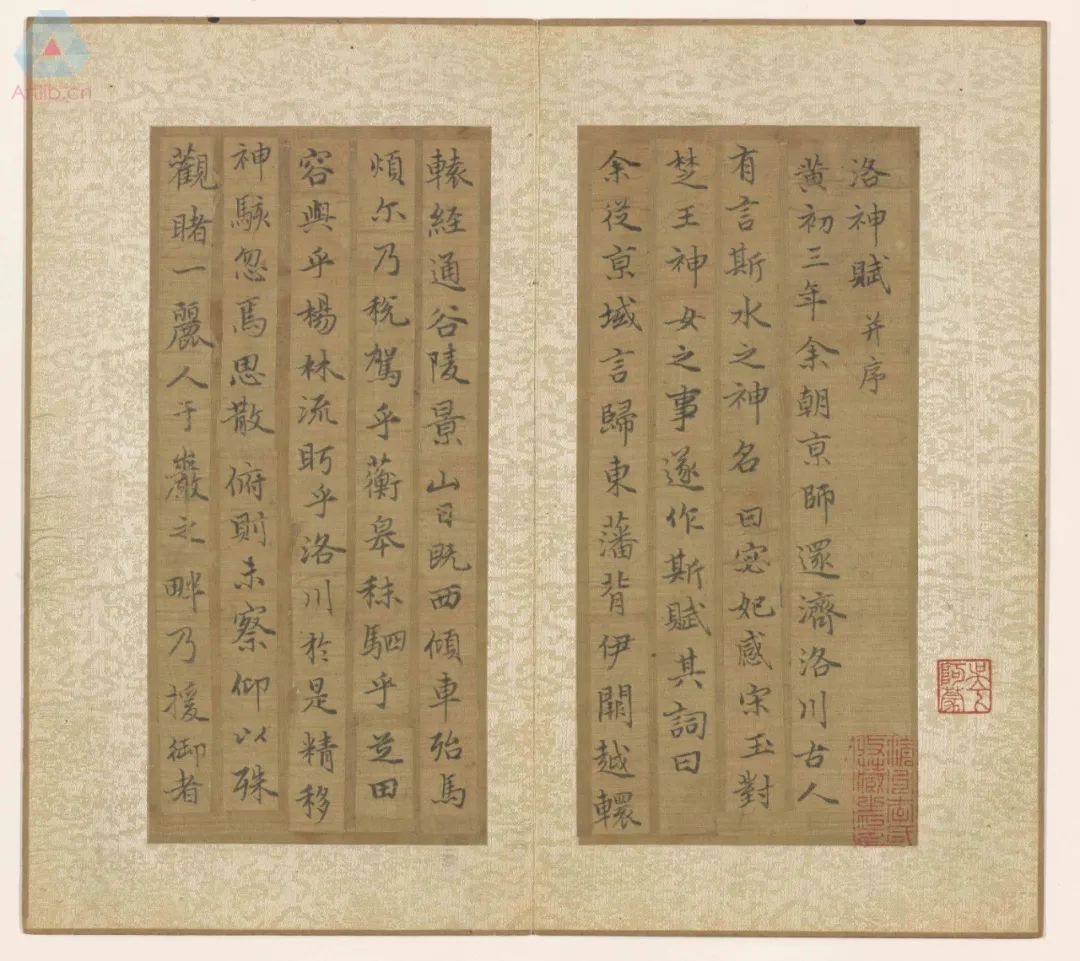 洛神賦 并序
黄初三年余朝京師還濟洛川古人
有言斯水之神名曰宓妃感宋玉對
楚王神女之事遂作斯賦其詞曰
余從京域言歸東藩背伊闕越轘
轅経通谷陵景山日既西傾車殆馬
煩尔乃税駕乎蘅皋秣駟乎芝田
容與乎楊林流眄乎洛川於是精移
神駭忽焉思散俯則未察仰以殊
觀睹一麗人于巖之畔乃援御者
吳下阿蒙
Artlib.cn